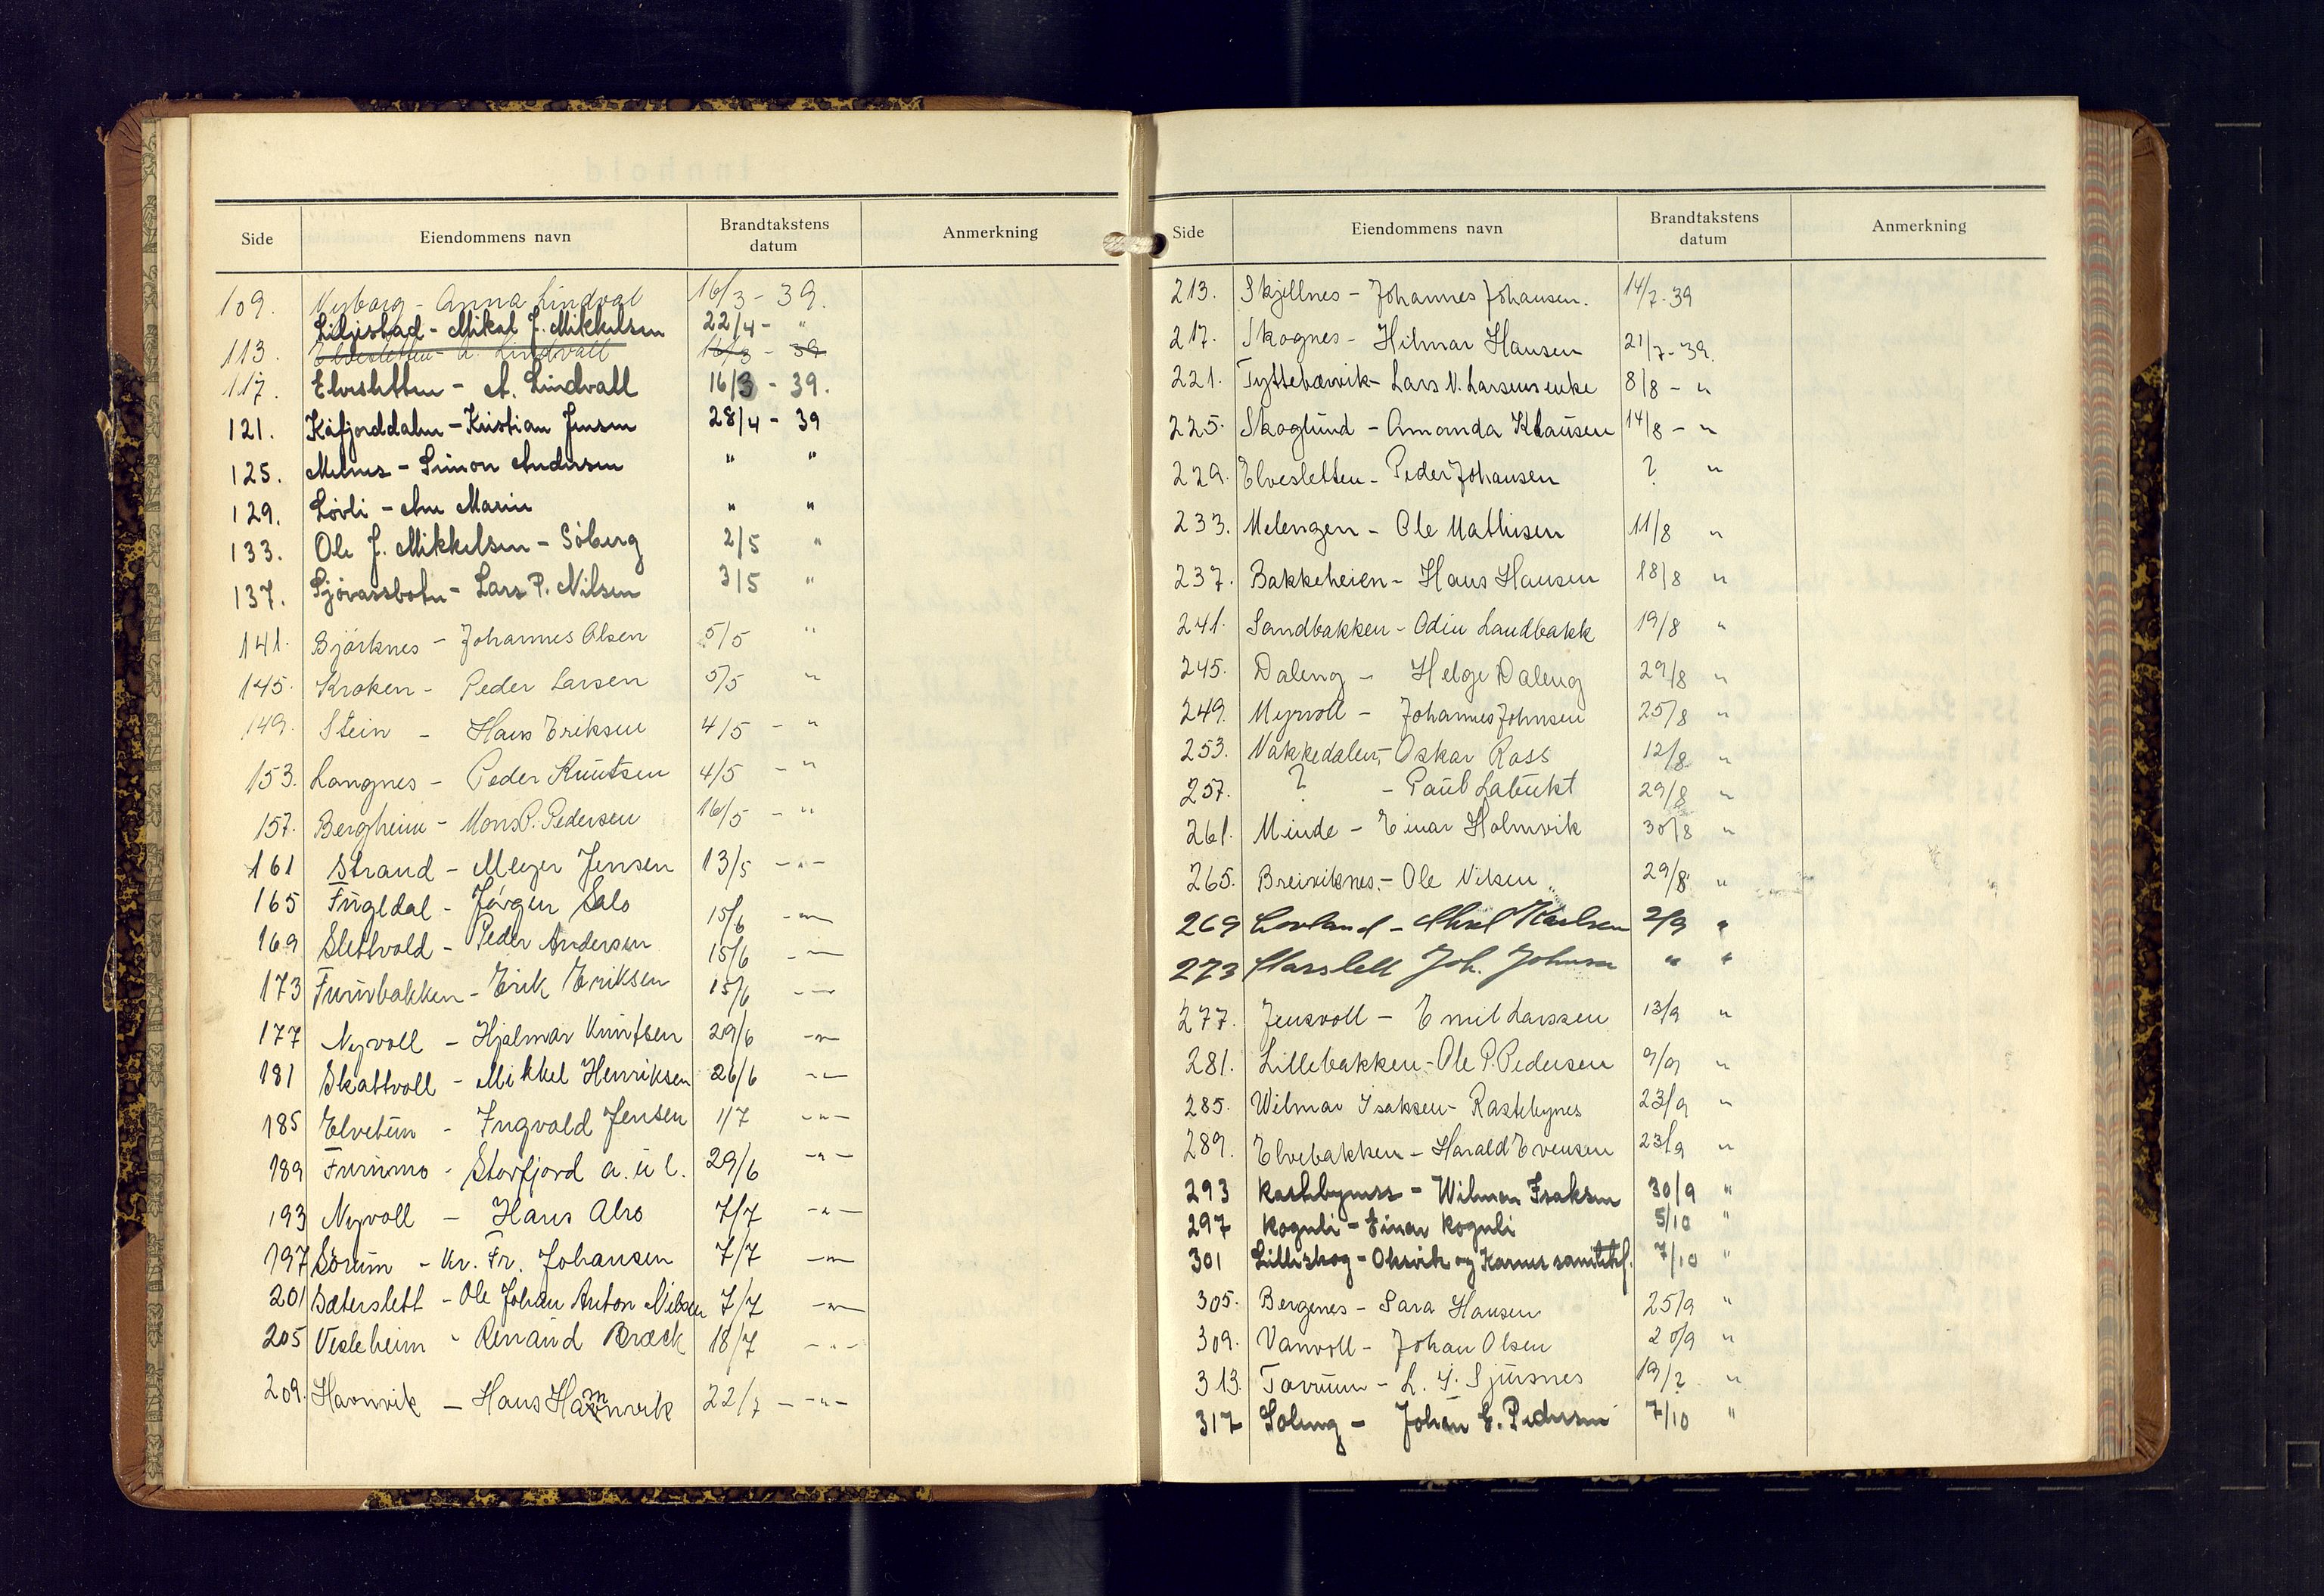 Side Eiendommens navn Brandtakstens datum Anmerkning
109. Nyborg - Anna Lindval 16/3 - 39.
Liljestad - Mikal J. Mikkelsen 22/4 - "
113. Elvesletten - A. Lindvall 16/3 - 39
117. Elvesletten - A. Lindvall 16/3 - 39.
121. Kåfjorddalen - Kristian Jensen 28/4 - 39
125. Melnes - Simon Andersen " "
129. Lövli - Ane Marie " "
133. Ole J. Mikkelsen - Söberg 2/5 "
137. Sjövassbotn - Lars P. Nilsen 3/5 "
141. Björknes - Johannes Olsen 5/5 "
145. Kroken - Peder Larsen 5/5 "
149. Stein - Hans Eriksen 4/5 - "
153. Langnes - Peder Knutsen 4/5 - "
157. Bergheim - Mons P. Pedersen 16/5 - "
161 Strand - Meyer Jensen 13/5 -"-
165 Fugldal - Jørgen Salo 15/6 -"-
169 Slettvold - Peder Andersen 15/6 -"-
173 Furubakken - Erik Eriksen 15/6 -"-
177 Nyvoll - Hjalmar Knutsen 29/6 -"-
181 Skattvoll - Mikkel Henriksen 26/6 -"-
185 Elvetun - Ingvald Jensen 1/7 -"-
189 Furumo - Storfjord a. u l. 29/6 -"-
193 Nyvoll - Hans Alro 7/7 -"-
197 Sörum - Kr. Fr. Johansen 7/7 -"-
201 Sæterslett - Ole Johan Anton Nilsen 7/7 -"-
205 Vesleheim - Renaud Bræck 18/7 -"-
209. Havnvik - Hans Hamnvik 22/7 - -"-
Side Eiendommens navn Brandtakstens datum Anmerkning
213. Skjellnes - Johannes Johansen. 14/7 - 39
217. Skognes - Hilmar Hansen 21/7 - 39.
221. Tyttebærvik - Lars N. Larsens enke 8/8 - "
225. Skoglund - Amanda Klausen 14/8 - "
229. Elvesletten - Peder Johansen ? "
233. Melengen - Ole Mathisen 11/8 "
237. Bakkeheien - Hans Hansen 18/8 "
241. Sandbakken - Odin Landbakk 19/8 "
245. Daleng - Helge Daleng 29/8 "
249. Myrvoll - Johannes Johnsen 25/8 "
253. Nakkedalen, - Oskar Ross 12/8 "
257. ? - Paul Labukt 29/8 "
261. Minde - Einar Holmvik 30/8 "
265. Breiviknes. - Ole Nilsen 29/8 "
269 Lovland - Aksel Karlsen 2/9 "
273 Marslett Joh. Johnsen " "
277. Jensvoll - Emil Larssen 13/9 "
281. Lillebakken - Ole P. Pedersen 9/9 "
285. Wilmar Isaksen - Rastebynes 23/9 "
289. Elvebakken - Harald Evensen 23/9 "
293 Rastebyness - Wilmar Isaksen 30/9 "
297 Rognli - Einar Rognli 5/10 "
301 Lilleskog - Oksvik og Karnes samtekl. 7/10 "
305. Bergenes - Sara Hansen 25/9 "
309. Vanvoll - Johan Olsen 20/9 "
313. Tørrum - L. J. Sjursnes 19/2 "
317 Soleng - Johan E. Pedersen 7/10 "